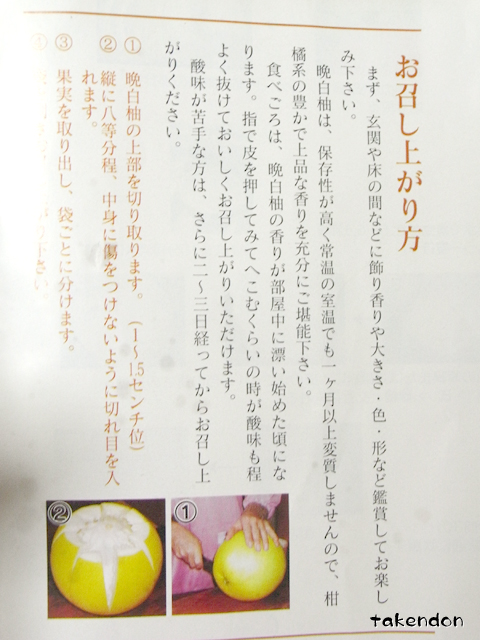 お召し上がり方
まず、玄関や床の間などに飾り香りや大きさ・色・形など鑑賞してお楽し
み下さい。
晩白柚は、保存性が高く常温の室温でも一ヶ月以上変質しませんので、柑
橘系の豊かで上品な香りを充分にご堪能下さい。
食べごろは、晩白柚の香りが部屋中に漂い始めた頃にな
ります。指で皮を押してみてへこむくらいの時が酸味も程
よく抜けておいしくお召し上がりいただけます。
酸味が苦手な方は、さらに二〜三日経ってからお召し上
がりください。
① 晩白柚の上部を切り取ります。（1〜1.5センチ位）
② 縦に八等分程、中身に傷をつけないように切れ目を入
れます。
③ 果実を取り出し、袋ごとに分けます。
下さい。
①
②
takendon